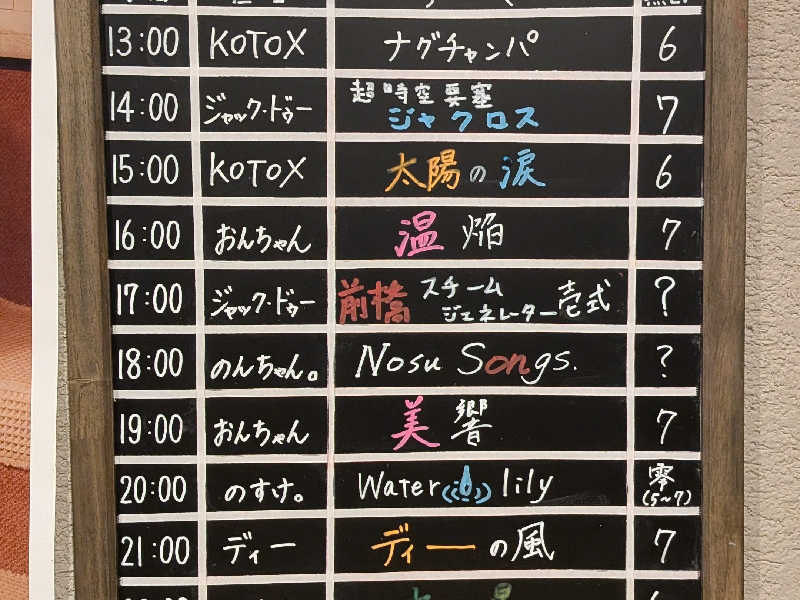 13:00 KOTOX ナグチャンパ 6
14:00 ジャック・ドゥー 超時空要塞 ジャクロス 7
15:00 KOTOX 太陽の涙 6
16:00 おんちゃん 温焔 7
17:00 ジャック・ドゥー 前橋スチームジェネレーター壱式 ?
18:00 のんちゃん。 Nosu Songs. ?
19:00 おんちゃん 美響 7
20:00 のすけ。 Water lily 零(5~7)
21:00 ディー ディーの風 7